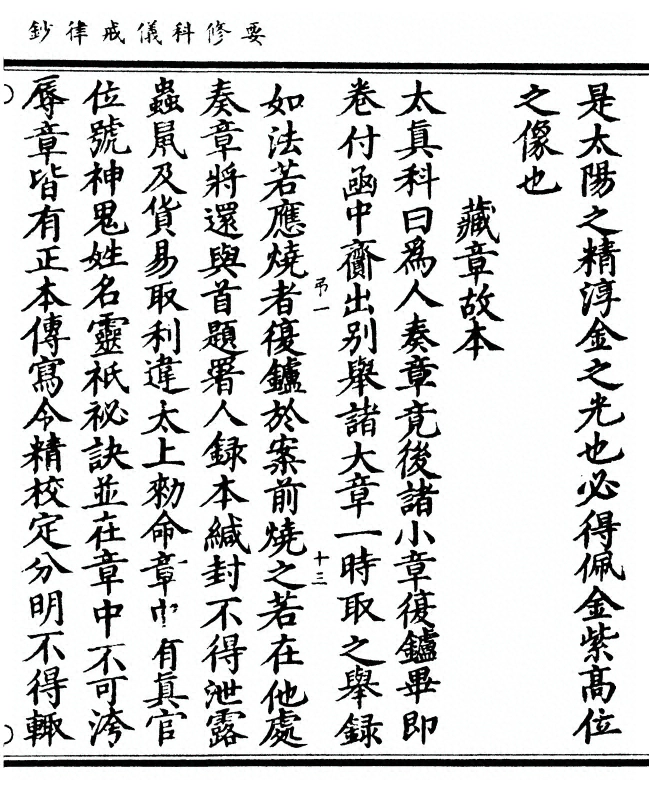 要修科儀戒律鈔
是太陽之精淳金之光也必得佩金紫髙位
之像也
藏章故本
太真科曰為人奏章竟後諸小章復鑪畢即
卷付函中齎出别舉諸大章一時取之舉録
如法若應燒者復鑪於案前燒之若在他處
弔一
十三
奏章將還與首題署人録本緘封不得泄露
蟲鼠及貨易取利違太上勑命章中有真官
位號神鬼姓名靈祇祕訣並在章中不可洿
辱章皆有正本傳寫令精校定分明不得輙